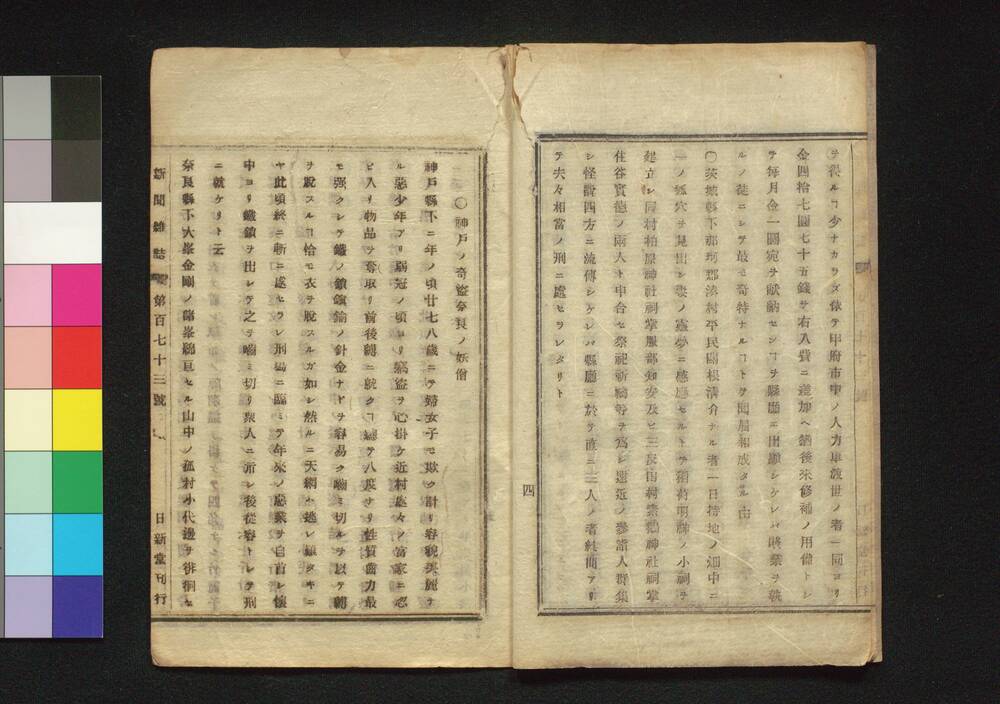 ヲ得ルヿ少ナカラズ依テ甲府市中ノ人力車渡世ノ者一同ヨリ
金四拾七圓七十五錢ヲ右入費ニ差加ヘ猶後來修補ノ用備トシ
テ毎月金一圓宛ヲ献納センヿヲ縣廳ニ出願シケレバ賎業ヲ執
ルノ徒ニシテ最モ奇特ナルコトヲ聞屆相成タル由
〇茨城縣下那珂郡湊村平民關根淸介ナル者一日持地ノ畑中ニ
一ノ狐穴ヲ見出シ妻ノ靈夢ニ感應セルトテ稻荷明神ノ小祠ヲ
建立シ同村柏原神社祠掌服部知安及ヒ三反田村素鵞神社祠掌
住谷實德ノ兩人ト申合セ祭祀祈禱等ヲ爲シ遠近ノ參詣人群集
シ怪説四方ニ流傳シケレバ縣廳ニ於テ直ニ三人ノ者糺問アリ
テ夫々相當ノ刑ニ處セラレタリト
四
〇神戸ノ奇盜奈良ノ妖僧
神戸縣下ニ年ノ頃廿七八歳ニテ婦女子モ欺ク計リ容貌美麗ナ
ル惡少年アリ弱冠ノ頃ヨリ竊盜ヲ心掛ケ近村處々ノ富家ニ忍
ビ入リ物品ヲ奪取リ前後縛ニ就クヿ總テ八度ナリ性質齒力最
モ强クシテ鐵ノ鎖鎮鍮ノ針金ナトヲ容易ク嚙ミ切ルヲ以テ縛
ヲ脫スルヿ恰モ衣ヲ脫スルガ如シ然ルニ天網ハ逃レ難タキニ
ヤ此頃終ニ斬ニ處セラレ刑塲ニ臨ミテ年來ノ惡業ヲ自首シ懷
中ヨリ鐵鎖ヲ出シテ之ヲ嚙ミ切リ衆人ニ示シ後從容トシテ刑
ニ就ケリト云
奈良縣下大峯金剛ノ諸峯綿亘セル山中ノ孤村小代邊ヲ徘徊セ
新聞雜誌 第百七十三號
日新堂刊行